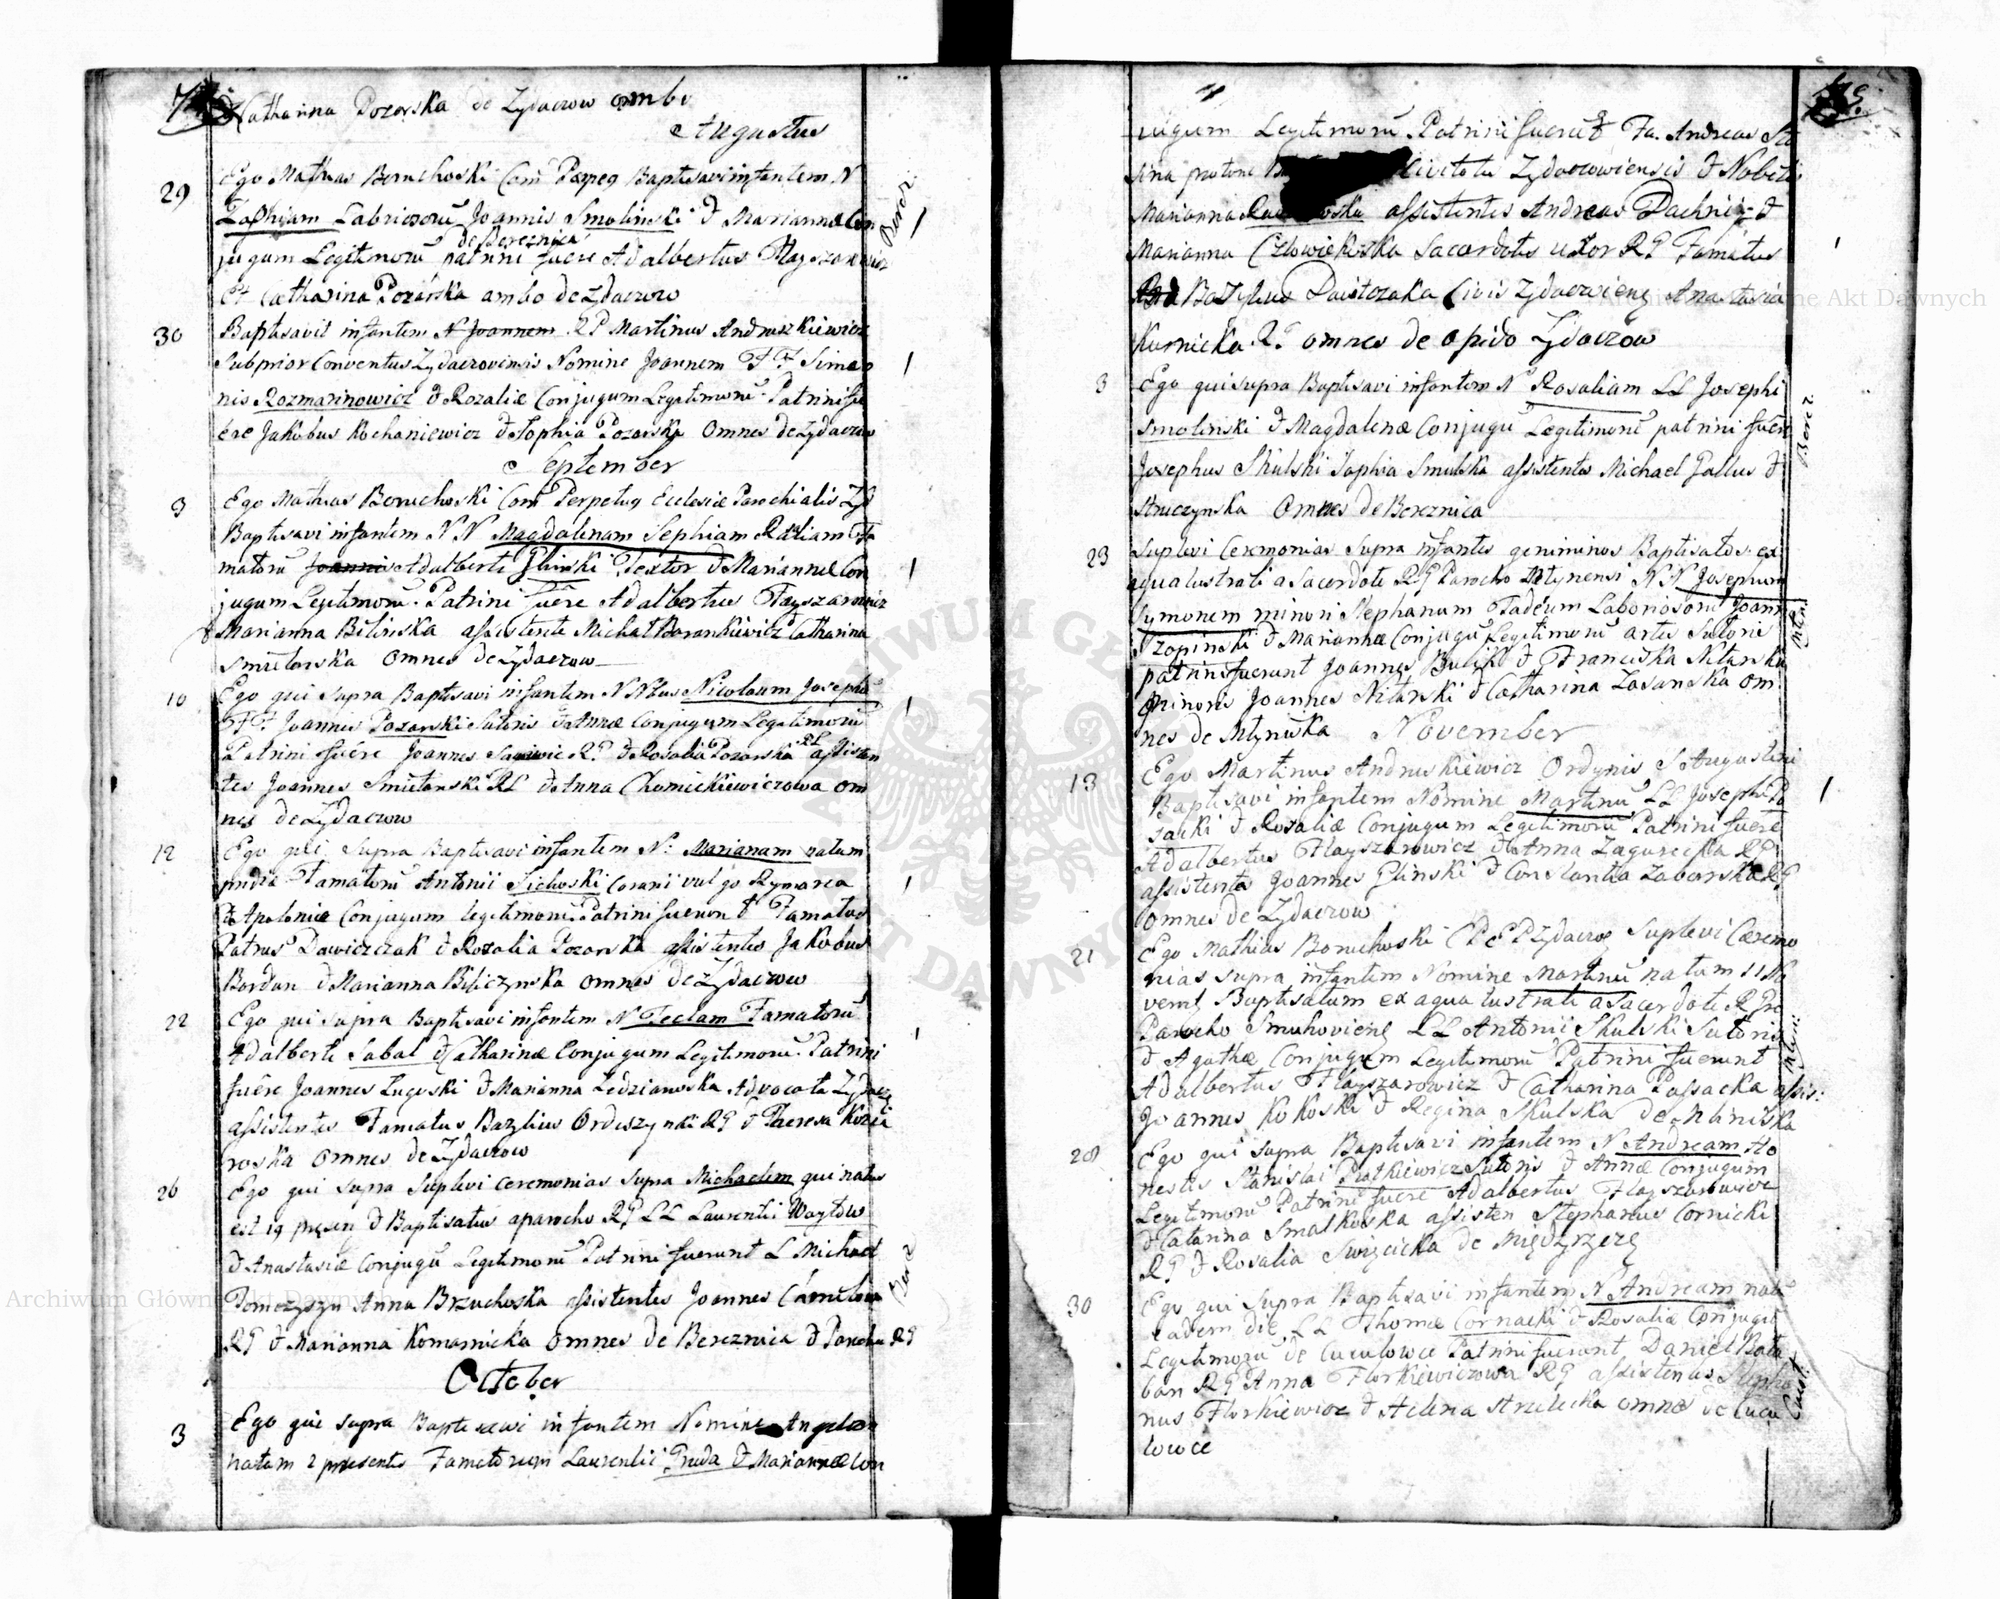 Catharina Pozorska de Zydaczow ambo
Augustus
29 Ego Mathias Boruchoski Com Perpeg Baptisavi infantem N
Zophiam Laboriosorũ Joannis Smolinski & Mariannæ Con
de Bereznica
jugum Legitimorũ patrini fuere Adalbertus Flayszarowicz
Et Catharina Pozorska ambo de Zydaczow
Berez:
30 Baptisavit infantem N Joannem RP Martinus Andruszkiewicz
Subprior Conventus Zydaczoviensis Nomine Joannem FF Simeo
nis Rozmarinowicz & Rozaliæ Conjugum Legitimorũ Patrini fu
ere Jakobus Kochaniewicz & Sophia Pozorska Omnes de Zydaczow
September
9 Ego Mathias Boruchoski Com Perpetuq Ecclesiæ Parochialis Zyd
Baptisavi infantem NN Magdalenam Sophiam Rosaliam Fa
matorũ Joannis Adalberti Glinski Textor & Mariannæ Con
jugum Legitimorũ Patrini fuere Adalbertus Flayszarowicz
& Marianna Bilinska assistente Michał Barankiewicz Catharina
Smietanska Omnes de Zydaczow
10 Ego qui Supra Baptisavi infantem N Nicolaum Josephũ
FF Joannis Pozorski Sutoris & Annæ Conjugum Legitimorũ
Patrini fuere Joannes RP & Rosalia Pozorska RL assisten
tes Joannes Smietanski RL & Anna Chomickiewiczowa om
nes de Zydaczow
12 Ego qui Supra Baptisavi infantem N: Marianam natam
pridie Famatorũ Antonii Sichoski vulgo Rymarza
& Apoloniæ Conjugum legitimorũ Patrini fuerunt Famatus
Petrus Dawidczak & Rozalia Pozorska assistentes Jakobus
Bordun & Marianna Biliczynska omnes de Zydaczow
22 Ego qui Supra Baptisavi infantem N Teclam Famatorũ
Adalberti Sabat & Catharinæ Conjugum Legitimorũ Patrini
fuere Joannes Lugoski & Marianna Ledzianowska Advocata Zydacz
assistentes Famatus Bazylius RG & Theresa
roska Omnes de Zydaczow
26 Ego qui Supra Suplevi ceremonias supra Michaelem qui natus
est 19 presen & Baptisatus a parocho RG LL Laurentii Waytow
& Anastasiæ Conjugũ Legitimorũ Patrini fuerunt L Michael
Tomczyszyn Anna Brzuchoska assistentes Joannes
RG & Marianna Komarnicka Omnes de Bereznica & Parocho RG
Berez
October
3 Ego qui supra Baptisavi infantem Nomine Angelam
natam 2 presentis Famatorum Laurentii Gruda & Mariannæ Con
jugum Legitimorũ Patrini fuerũt Fa. Andreas
Civitatis Zydaczowiensis & Nobilis
Marianna assistentes Andreas Dachniz &
Marianna Człowiekoska Sacerdotis uxor RG Famatus
Bazylius Dawidczaka Civis Zydaczwieng Anastasia
Kurnicka RG omnes de opido Zydaczow
3 Ego qui supra Baptisavi infantem N Rosaliam LL Josephi
Smolinski & Magdalenæ Conjugũ Legitimorũ patrini fuere
Josephus Skulski Sophia Smulska assistentes Michael Gallus &
Struczynska Omnes de Bereznica
Berez
23 Suplevi Ceremonias Supra infantes geminos Baptisatos ex
aqua lustrali a Sacerdote RG Parocho Młynensi NN Josephum
Symonem minori Stephanum Tadeum Laboriosorũ Joann
Szopinski & Mariannæ Conjugũ Legitimorũ artis Sutoriæ
patrini fuerunt Joannes & Franciska Nitarska
minoris Joannes Nitarski & Catharina Zasanska om
nes de Młyniska
November
13 Ego Martinus Andruskiewicz Ordynis S Augustini
Baptisavi infantem Nomine Martinũ LL Josephi Pa
sacki & Rosaliæ Conjugum Legitimorũ Patrini fuere
Adalbertus Flayszarowicz & Anna RG
assistentes Joannes Glinski & Constantia Zaborska RG
Omnes de Zydaczow
21 Ego Mathias Boruchoski CPEP Zydaczo Suplevi Ceremo
nias supra infantem Nomine Martinũ natum 11 No
vemb Baptisatum ex aqua lustrali a Sacerdote RG
Parocho LL Antonii Skulski Sutoris
& Agathæ Conjugum Legitimorũ Patrini fuerunt
Adalbertus Flayszarowicz & Catharina Passacka assis:
Joannes Kokoski & Regina Skulska de Młyniska
28 Ego qui supra Baptisavi infantem N Andream Ho
nestis Stanislai Piotkiewicz Sutoris & Annæ Conjugum
Legitimorũ Patrini fuere Adalbertus Flayszarowicz
& Catarina Smalkoska assisten Stephanus Cornicki
RG & Rosalia Swięcicka de Międzyrzecz
30 Ego qui Supra Baptisavi infantem N Andream natũ
eadem die LL Thomæ Cornacki & Rosaliæ Conjugũ
Legitimorũ de Cuculowce Patrini fuerunt Daniel Bała
ban RG Anna Florkiewiczowa RG assistentes Stepha
nus Florkiewicz & Helena Strzelecka omnes de Cucu
lowce
Archiwum Główne Akt Dawnych